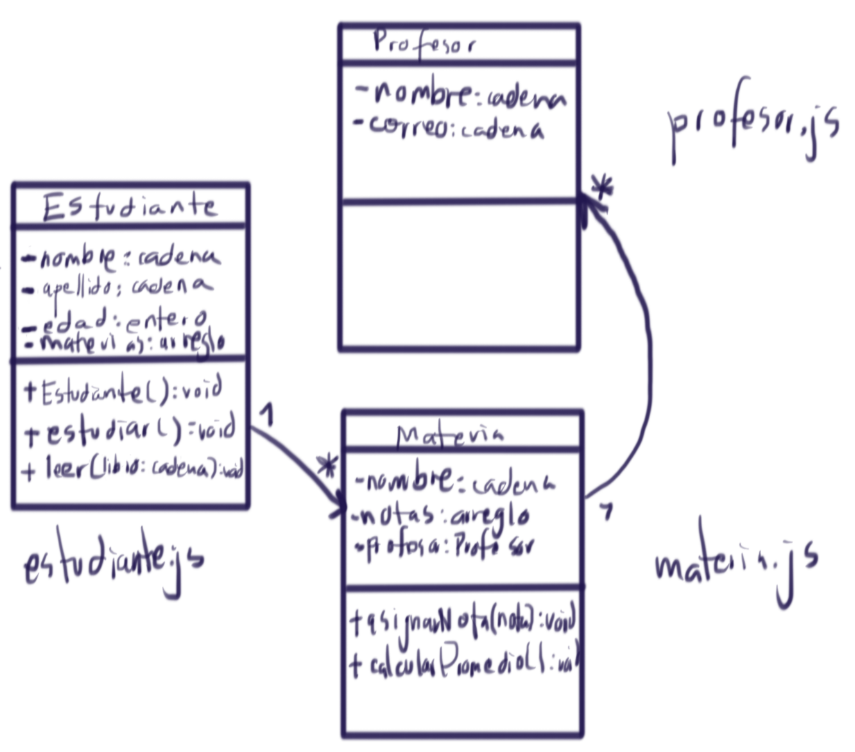 Profesor
-nombre:cadena
-correo:cadena
profesor.js
*
Estudiante
-nombre:cadena
-apellido:cadena
-edad:entero
-materias:arreglo
+Estudiante():void
+estudiar():void
+leer(libro:cadena):void
estudiante.js
1
*
Materia
-nombre:cadena
-notas:arreglo
-:Profesor
+asignarNota(nota):void
+calcularPromedio():void
1
materia.js